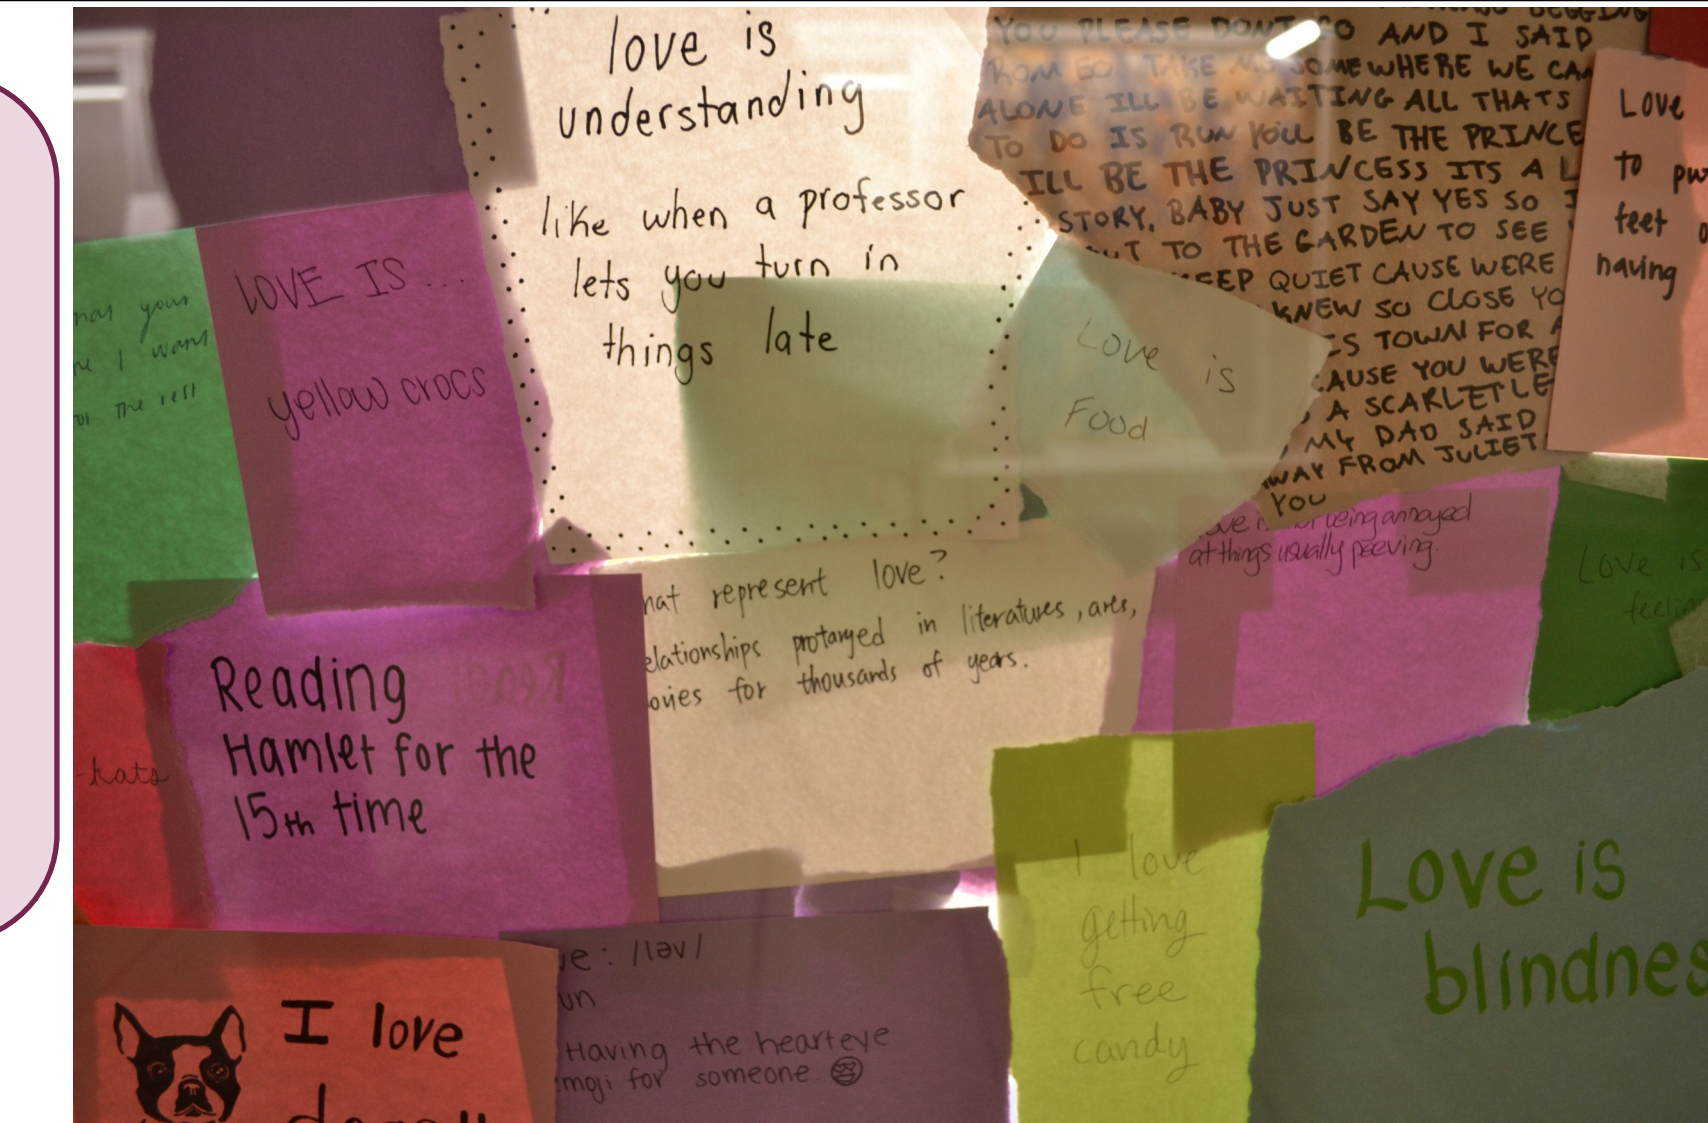 love is
understanding
like when a professor
lets you turn in
things late
YOU PLEASE DONT GO AND I SAID
ROMEO TAKE ME SOMEWHERE WE CAN
ALONE ILL BE WAITING ALL THATS
TO DO IS RUN YOULL BE THE PRINCE
ILL BE THE PRINCESS ITS A L
STORY. BABY JUST SAY YES SO I
OUT TO THE GARDEN TO SEE
KEEP QUIET CAUSE WERE
KNEW SO CLOSE YO
TOWN FOR A
CAUSE YOU WERE
A SCARLET LE
MY DAD SAID
AWAY FROM JULIET
YOU
Love
to
feet
having
your
I want
the rest
LOVE IS...
yellow crocs
Love is
Food
being annoyed
at things usually peeving.
Love is
feelin
hat represent love?
elationships protarged in literatures, ares,
ories for thousands of years.
Reading
Hamlet for the
15th time
-hats
I love
getting
free
candy
Love is
blindnes
ve: /ləv/
un
Having the hearteye
emoji for someone
I love